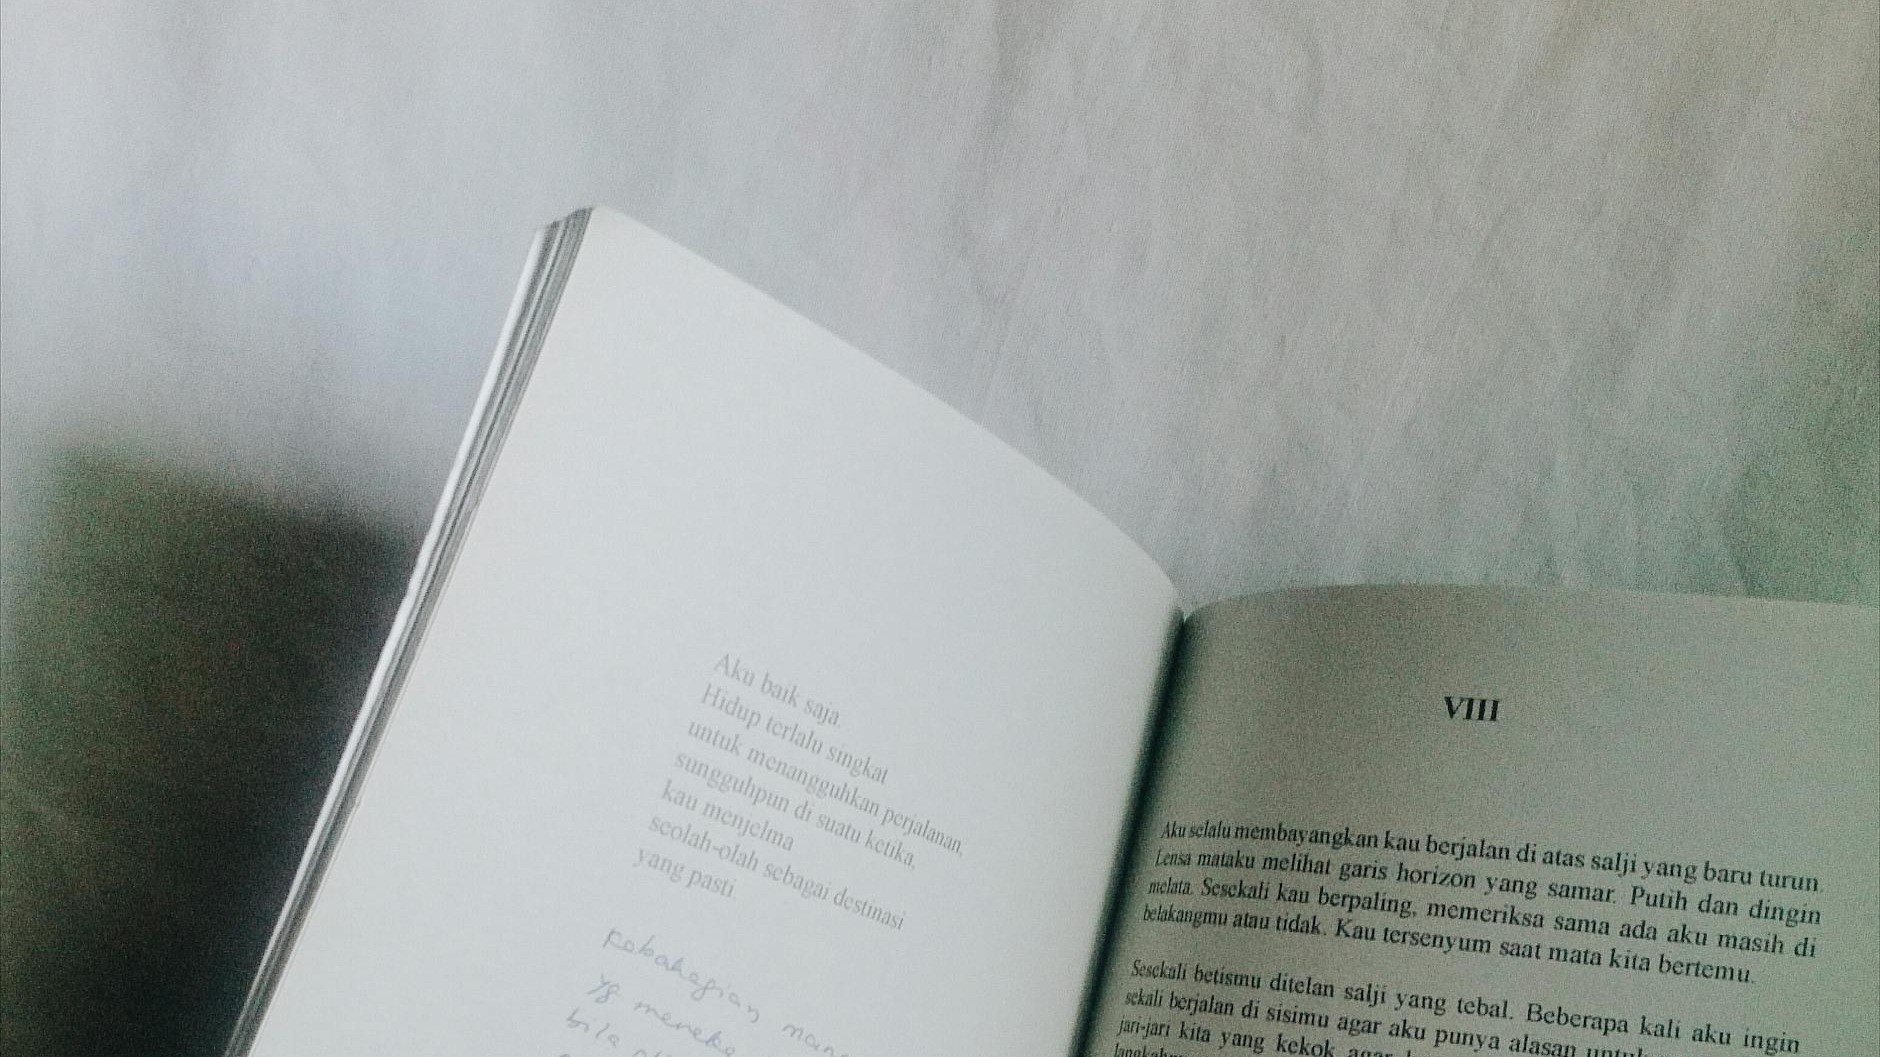 Aku baik saja.
Hidup terlalu singkat
untuk menangguhkan perjalanan,
sungguhpun di suatu ketika,
kau menjelma
seolah-olah sebagai destinasi
yang pasti.
kebahagian
yg
bila
VIII
Aku selalu membayangkan kau berjalan di atas salji yang baru turun.
Lensa mataku melihat garis horizon yang samar. Putih dan dingin
melata. Sesekali kau berpaling, memeriksa sama ada aku masih di
belakangmu atau tidak. Kau tersenyum saat mata kita bertemu.
Sesekali betismu ditelan salji yang tebal. Beberapa kali aku ingin
sekali berjalan di sisimu agar aku punya alasan
jari-jari kita yang kekok agar